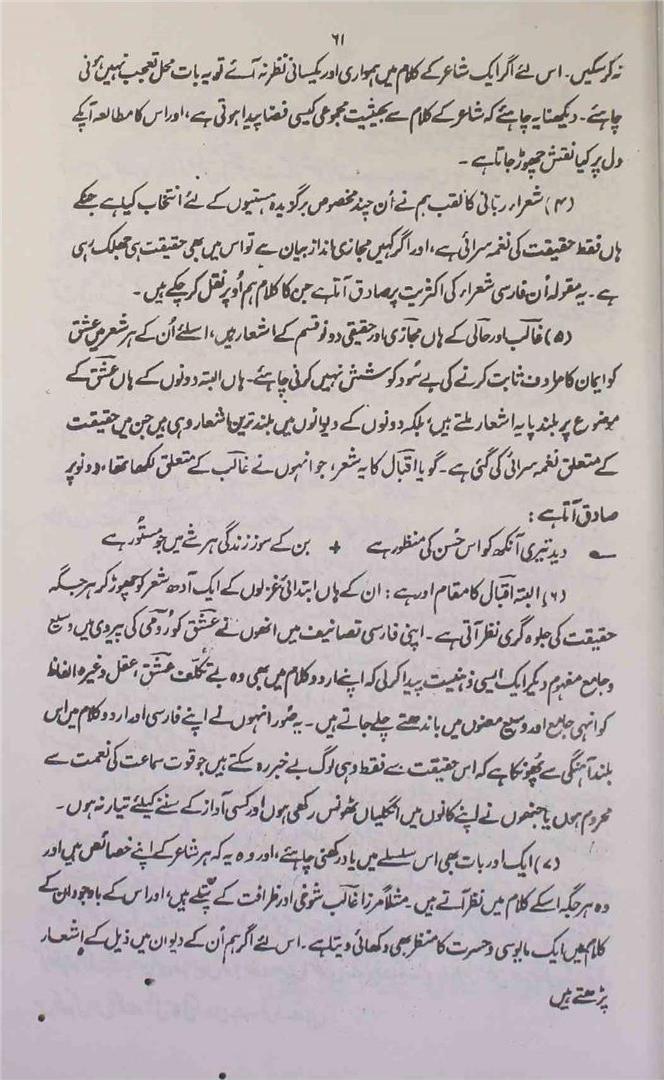 ۶۱
نہ کر سکیں۔ اس لئے اگر ایک شاعر کے کلام میں ہمواری اور یکسانی نظر نہ آئے تو یہ بات محل تعجب نہیں ہونی
چاہئے۔ دیکھنا یہ چاہئے کہ شاعر کے کلام سے بحیثیت مجموعی کیسی فضا پیدا ہوتی ہے، اور اس کا مطالعہ آپکے
دل پر کیا نقش چھوڑ جاتا ہے۔
(۴) شعراء ربانی کا لقب ہم نے اُن چند مخصوص برگزیدہ ہستیوں کے لئے انتخاب کیا ہے جنکے
ہاں فقط حقیقت کی نغمہ سرائی ہے، اور اگر کہیں مجازی انداز بیان ہے تو اس میں بھی حقیقت ہی جھلک رہی
ہے۔ یہ مقولہ اُن فارسی شعراء کی اکثریت پر صادق آتا ہے جن کا کلام ہم اُوپر نقل کر چکے ہیں۔
(۵) غالب اور حالی کے ہاں مجازی اور حقیقی دونو قسم کے اشعار ہیں، اسلئے اُن کے ہر شعر میں عشق
کو ایمان کا مرادف ثابت کرنے کی بے سُود کوشش نہیں کرنی چاہئے۔ ہاں البتہ دونوں کے ہاں عشق کے
موضوع پر بلند پایہ اشعار ملتے ہیں، بلکہ دونوں کے دیوانوں میں بلند ترین اشعار وہی ہیں جن میں حقیقت
کے متعلق نغمہ سرائی کی گئی ہے۔ گویا اقبال کا یہ شعر، جو انہوں نے غالب کے متعلق لکھا تھا، دونو پر
صادق آتا ہے:
دید تیری آنکھ کو اس حُسن کی منظور ہے + بن کے سوز زندگی ہر شے میں جو مستُور ہے
(۶) البتہ اقبال کا مقام اور ہے: ان کے ہاں ابتدائی غزلوں کے ایک آدھ شعر کو چھوڑ کر ہر جگہ
حقیقت کی جلوہ گری نظر آتی ہے۔ اپنی فارسی تصانیف میں انھوں نے عشق کو رُومی کی پیروی میں وسیع
و جامع مفہوم دیکر ایک ایسی ذہنیت پیدا کر لی کہ اپنے اردو کلام میں بھی وہ بے تکلف عشق، عقل وغیرہ الفاظ
کو انہی جامع اور وسیع معنوں میں باندھتے چلے جاتے ہیں۔ یہ صُور انہوں نے اپنے فارسی اور اردو کلام میں اس
بلند آہنگی سے پھُونکا ہے کہ اس حقیقت سے فقط وہی لوگ بے خبر رہ سکتے ہیں جو قوت سماعت کی نعمت سے
محروم ہوں یا جنھوں نے اپنے کانوں میں انگلیاں ٹھونس رکھی ہوں اور کسی آواز کے سننے کیلئے تیار نہ ہوں۔
(۷) ایک اور بات بھی اس سلسلے میں یاد رکھنی چاہئے، اور وہ یہ کہ ہر شاعر کے اپنے خصائص ہیں اور
وہ ہر جگہ اسکے کلام میں نظر آتے ہیں۔ مثلاً مرزا غالب شوخی اور ظرافت کے پتلے ہیں، اور اس کے باوجود ان کے
کلام میں ایک مایوسی و حسرت کا منظر بھی دکھائی دیتا ہے۔ اس لئے اگر ہم اُن کے دیوان میں ذیل کے اشعار
پڑھتے ہیں